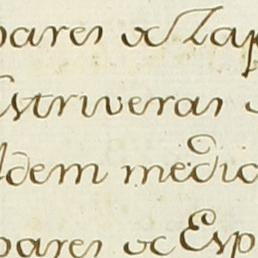 pares de Zap
Estriveras
Idem media
pares de Esp